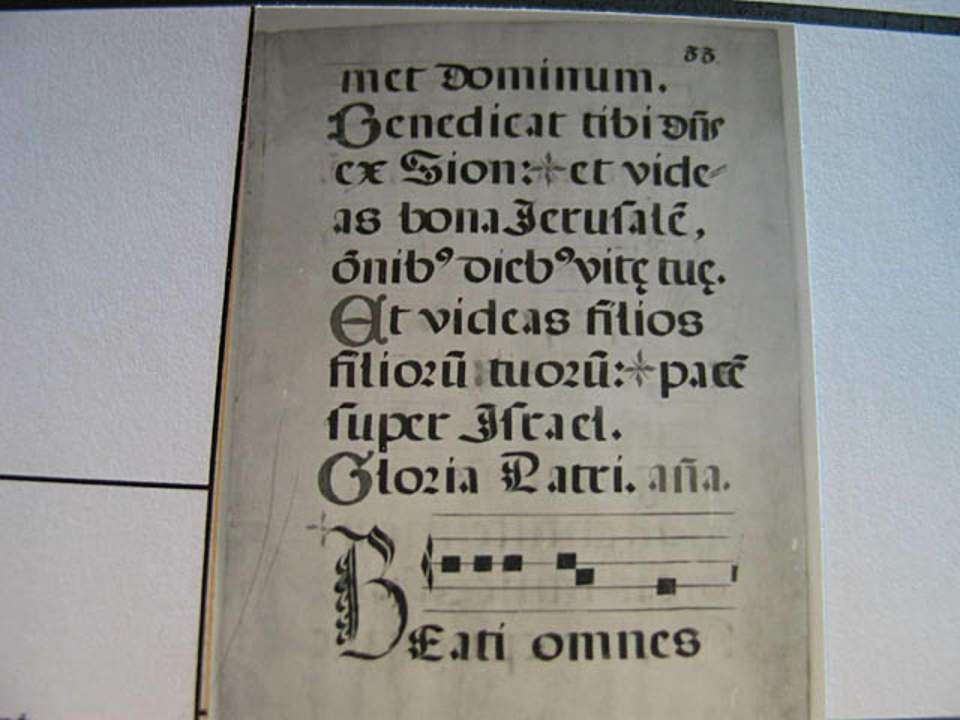 33.
met Dominum.
Benedicat tibi dn̄s
ex Sion:+et vide-
as bona Jerusalē,
ōnibꝰ diebꝰ vitę tuę.
Et videas filios
filiorū tuorū:+pacē
super Israel.
Gloria Patri. añā.
BEati omnes